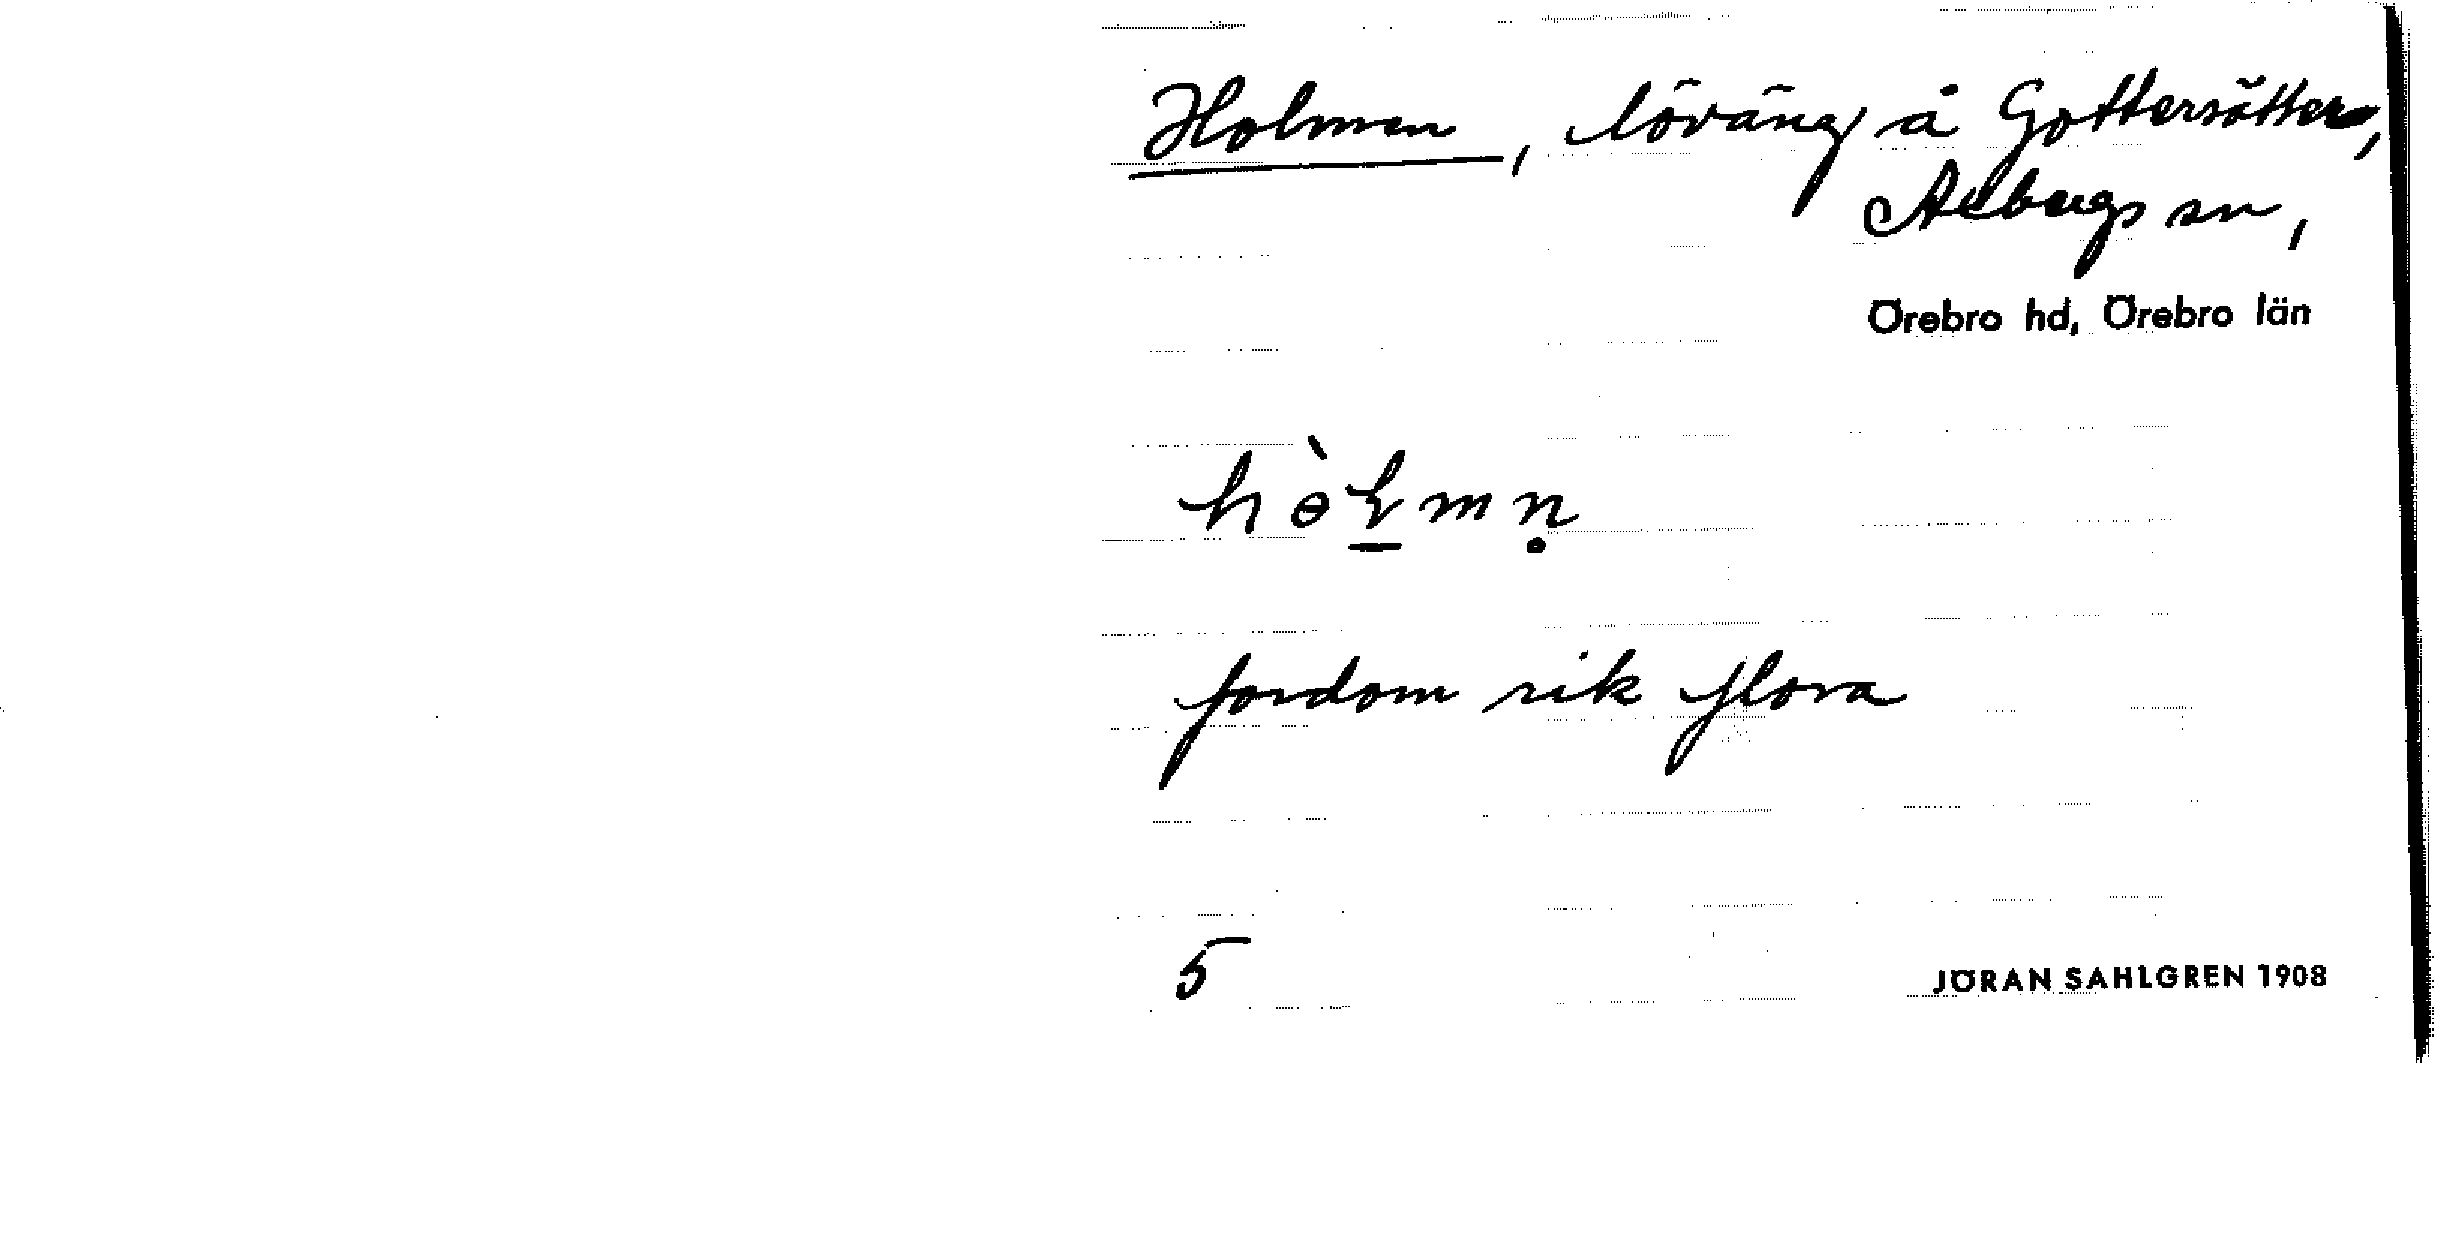 Holmen, löväng å Gottersätter,
Axbergs sn,
Örebro hd, Örebro län
hɵ̀l̠mṇ
fordom rik flora
5
JÖRAN SAHLGREN 1908